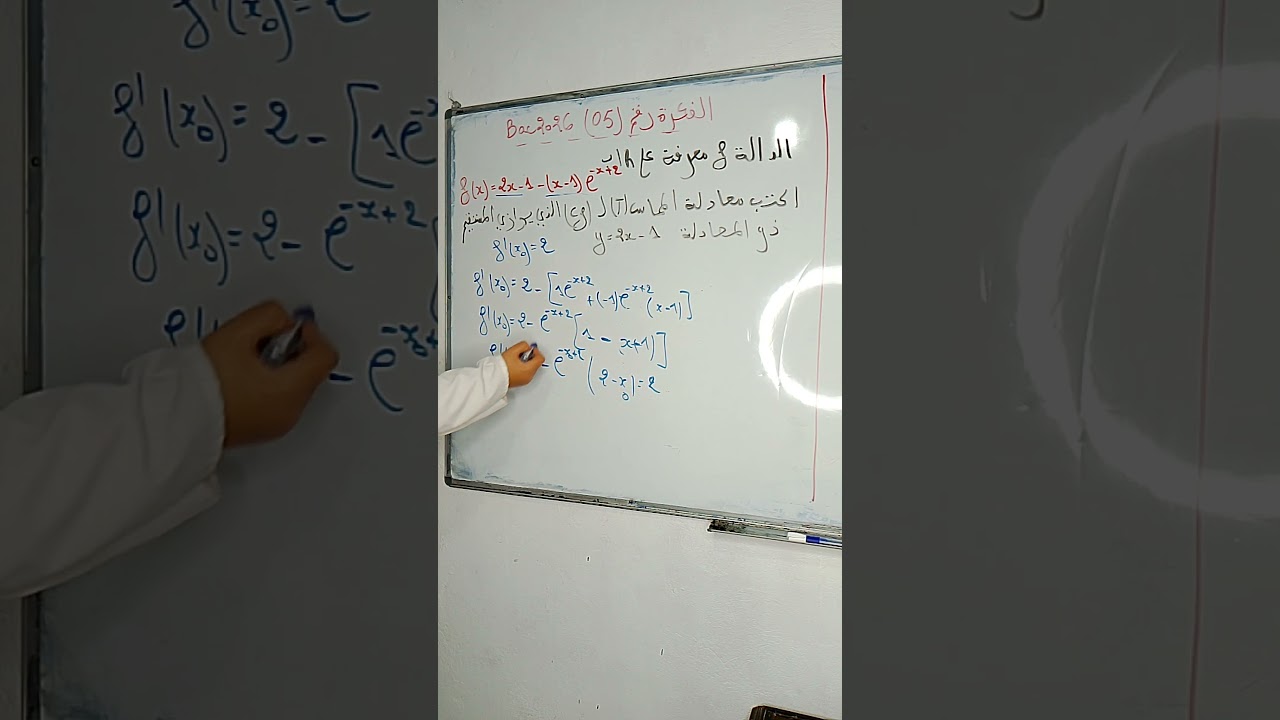 الفكرة رقم (05) Bac2026
الدالة f معرفة على R ب
f(x) = 2x-1-(x-1)e^{-x+2}
اكتب معادلة المماس (T) لـ (Cf) الذي يوازي المستقيم
ذو المعادلة y=2x-1
f'(x₀)=2
f'(x₀)=2-[1e^{-x+2}+(-1)e^{-x+2}(x-1)]
f'(x₀)=2-e^{-x+2}[1-x+1)]
-e^{-x₀+2}(2-x₀)=2